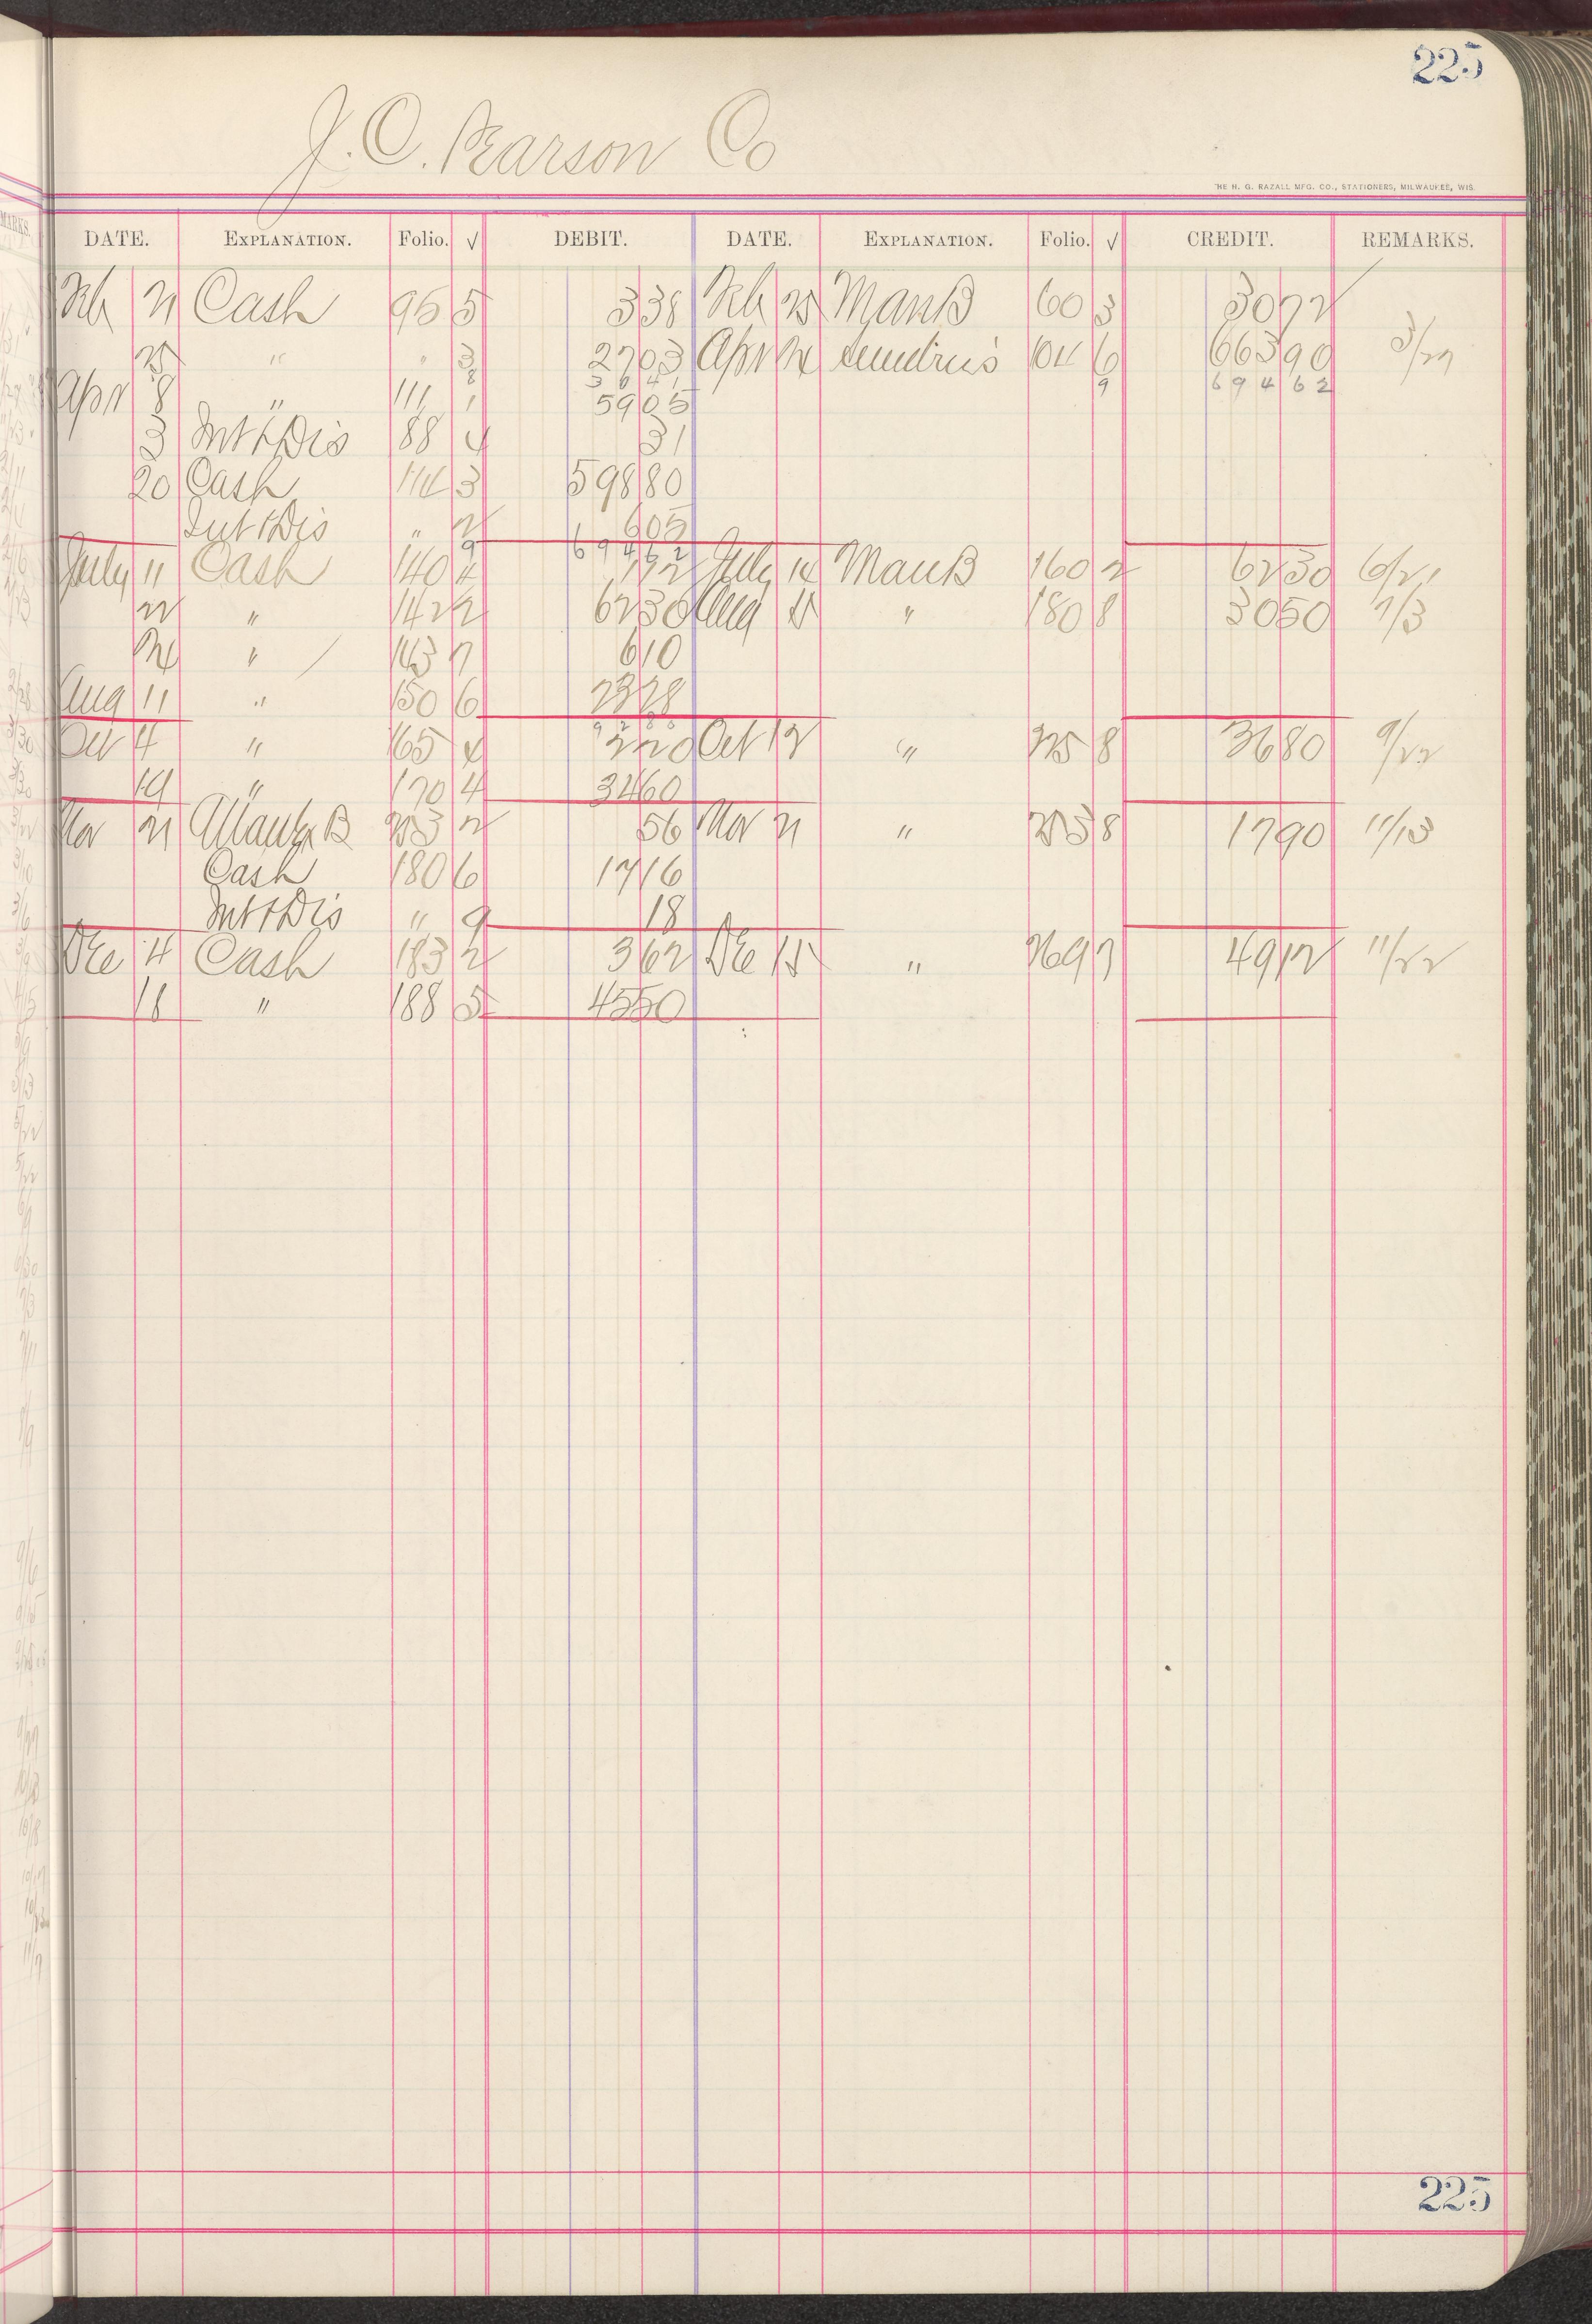 225
J. C. Pearson Co
THE H. G. RAZALL MFG. CO., STATIONERS, MILWAUKEE, WIS.
DATE. EXPLANATION. Folio. √ DEBIT. DATE. EXPLANATION. Folio. √ CREDIT. REMARKS.
Feb 21 Cash 95 5 3 38 Feb 25 Man B 60 3 30 72
25 " " 3 27 03 Apr 24 Sundries 104 6 663 90 3/27
9 694 62
Apr 8 " 111 1 59 05
3 Int & Dis 88 4 31
20 Cash 114 3 598 80
Int & Dis " 2 6 05
9 694 62
July 11 Cash 140 4 1 92 July 14 Man B 160 2 62 30 6/21
22 " 142 2 62 30 Aug 15 " 180 8 30 50 7/3
24 " 143 7 6 10
Aug 11 " 150 6 22 28
Oct 4 " 165 4 2 20 Oct 12 " 225 8 36 80 9/22
19 " 170 4 34 60
Nov 21 Manfr B 253 2 56 Nov 21 " 253 8 17 90 11/13
Cash 180 6 17 16
Int & Dis " 9 18
Dec 4 Cash 183 2 3 62 Dec 15 " 269 7 49 12 11/22
18 " 188 5 45 50
225